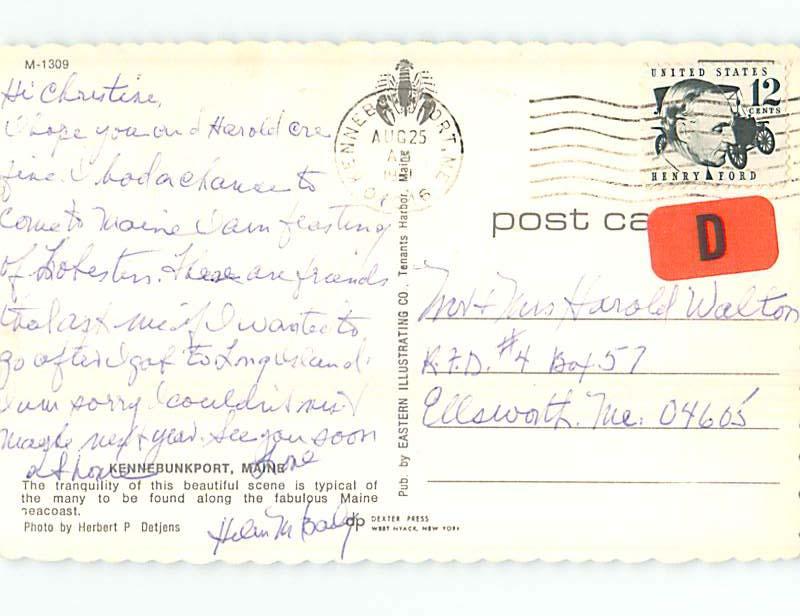 M-1309
Hi Christine,
I hope you and Harold are
fine. I had a chance to
come to Maine I am feasting
of Lobesters. These are friends
that ast me if I wanted to
go after I got to Long Island.
I am sorry I couldn't visit
maybe next year. See you soon
at home Love
Helen M
KENNEBUNKPORT, MAINE
The tranquility of this beautiful scene is typical of
the many to be found along the fabulous Maine
seacoast.
Photo by Herbert P Detjens
dp DEXTER PRESS
WEST NYACK, NEW YORK
Pub. by EASTERN ILLUSTRATING CO., Tenants Harbor, Maine
KENNEBUNKPORT, ME
AUG 25
AM
UNITED STATES
12 CENTS
HENRY FORD
post ca
D
Mr + Mrs Harold Walton
R.F.D. #4 Box 57
Ellsworth, Me. 04605